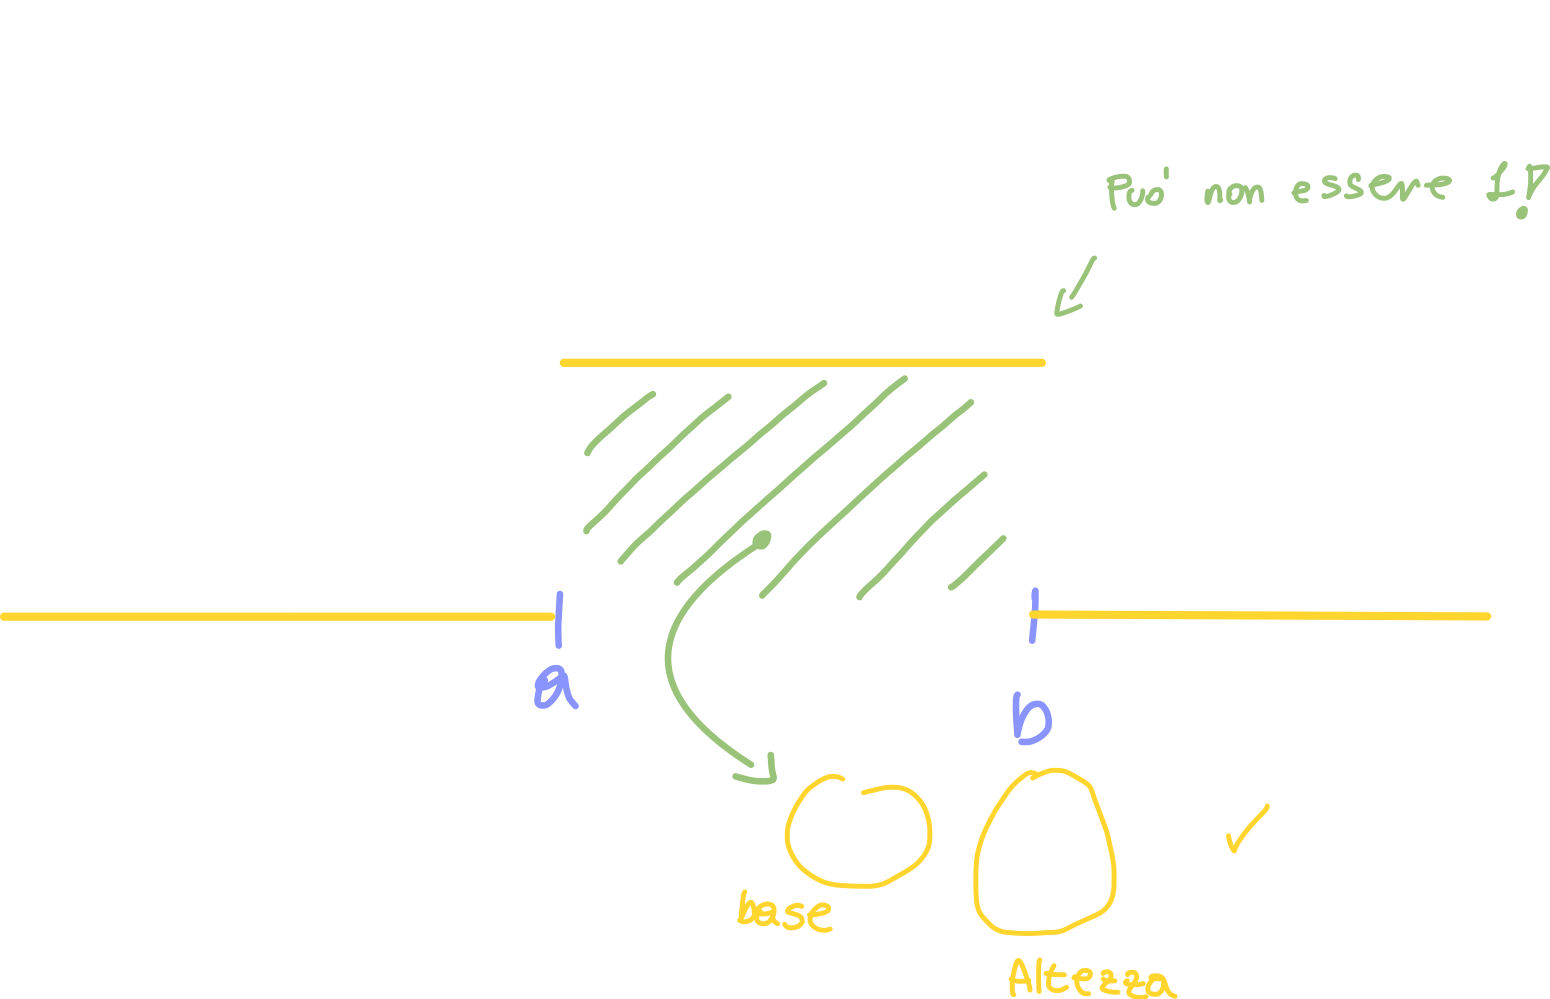 Può non essere 1!
a
b
base
Altezza